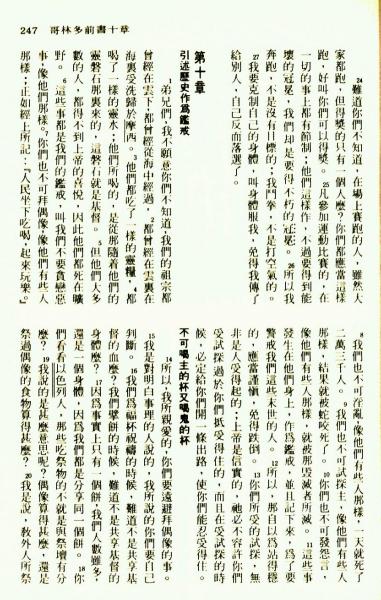 247 哥林多前書十章
24難道你們不知道，在場上賽跑的人，雖然大
家都跑，但得獎的只有一個人麼？你們都應當這樣
跑，好叫你們可以得獎。25凡參加運動比賽的，在
一切的事上都有節制；他們這樣作，不過要得到能
壞的冠冕，我們却是要得不朽的冠冕。26所以我
奔跑，不是沒有目標的；我鬥拳，不是打空氣的。
27我要克制自己的身體，叫身體服我，免得我傳了
給別人，自己反而落選了。
第十章
引述歷史作爲鑑戒
1弟兄們，我不願意你們不知道，我們的祖宗都
曾經在雲下，都曾經從海中經過，2都曾經在雲裏在
海裏受洗歸於摩西。3他們都吃了一樣的靈糧，4都
喝了一樣的靈水；他們所喝的，是從那隨着他們的
靈磐石那裏來的，這磐石就是基督。5但他們大多
數的人，都得不到上帝的喜悅，因此他們都死在曠
野。6這些事都是我們的鑑戒，叫我們不要貪戀惡
事，像他們那樣。7你們也不可拜偶像，像他們有些人
那樣；正如經上所記：「人民坐下吃喝，起來玩樂。」
8我們也不可淫亂，像他們有些人那樣，一天就死了
二萬三千人。9我們也不可試探主，像他們有些人
那樣，結果就被蛇咬死了。10你們也不可發怨言，
像他們有些人那樣，就被那毀滅者所滅。11這些事
發生在他們身上，作爲鑑戒，並且記下來，爲了要
警戒我們這些末世的人。12所以，那自以爲站得穩
的，應當謹愼，免得跌倒。13你們所受的試探，無
非是人受得起的；上帝是信實的，祂必不容許你們
受試探過於你們抵受得住的，而且在受試探的時
候，必定給你們開一條出路，使你們能忍受得住。
不可喝主的杯又喝鬼的杯
14所以，我所親愛的，你們要遠避拜偶像的事。
15我是對明白事理的人說的，我所說的你們要自己
判斷。16我們爲福杯祝禱的時候，難道不是共享基
督的血麼？我們擘餅的時候，難道不是共享基督的
身體麼？17因爲事實上只有一個餅，我們人數雖多，
還是一個身體，因爲我們都是分享同一個餅。18你
們看看以色列人，那些吃祭物的，不就是與祭壇有分
麼？19我說的是甚麼意思呢？偶像算得甚麼，還是
祭過偶像的食物算得甚麼？20我是說，教外人所祭